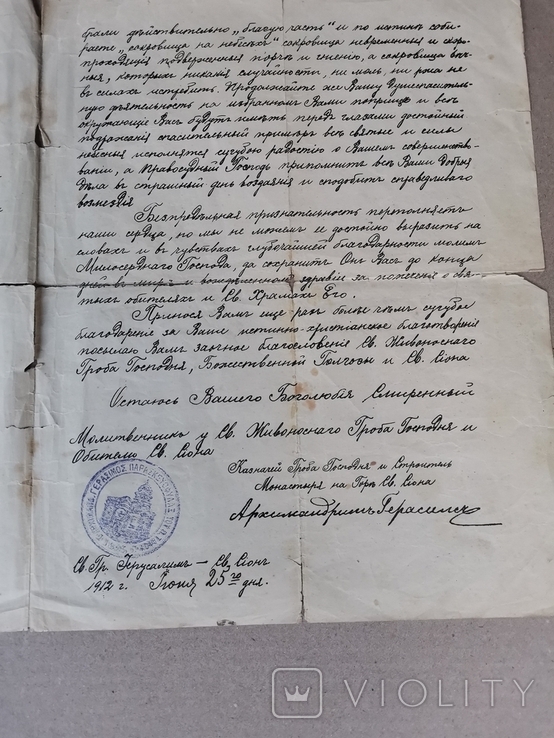 брали дѣйствительно „благую часть" и по истинѣ соби-
раете „сокровища на небесѣхъ" сокровища невременныя и скоро-
проходящія подверженныя порчѣ и тленію, а сокровища вѣч-
ныя, которыхъ никакія случайности, ни моль, ни ржа не
въ силахъ истребить. Продолжайте же Вашу душеспаситель-
ную дѣятельность на избранномъ Вами поприщѣ и всѣ
окружающіе Васъ будутъ имѣть передъ глазами достойный
подражанія спасительный примѣръ всѣ святые и силы
небесныя исполнятся сугубою радостію о Вашемъ совершенство-
ваніи, а Правосудный Господь припомнитъ всѣ Ваши добрыя
дѣла въ страшный день воздаянія и сподобитъ справедливаго
возмездія
Безпредѣльная признательность переполняетъ
наши сердца, но мы не можемъ ее достойно выразить на
словахъ и въ чувствахъ глубочайшей благодарности молимъ
Милосерднаго Господа, да сохранитъ Онъ Васъ до конца
дней въ мирѣ и вожделенномъ здравіе за попеченія о свя-
тыхъ обителяхъ и Св. Храмахъ Его.
Принося Вамъ еще разъ болѣе чѣмъ сугубое
благодареніе за Ваши истинно-христіанское благотворенія
посылаю Вамъ заочное благословеніе Св. Живоноснаго
Гроба Господня, Божественной Голгофы и Св. Сіона
Остаюсь Вашего Боголюбія Смиренный
Молитвенникъ у Св. Живоноснаго Гроба Господня и
Обители Св. Сіона
Казначей Гроба Господня и Строитель
Монастыря на Горѣ Св. Сіона
Архимандритъ Герасимъ
Св. Гр. Іерусалимъ — Св. Сіонъ
1912 г. Іюня 25го дня.
VIOLITY